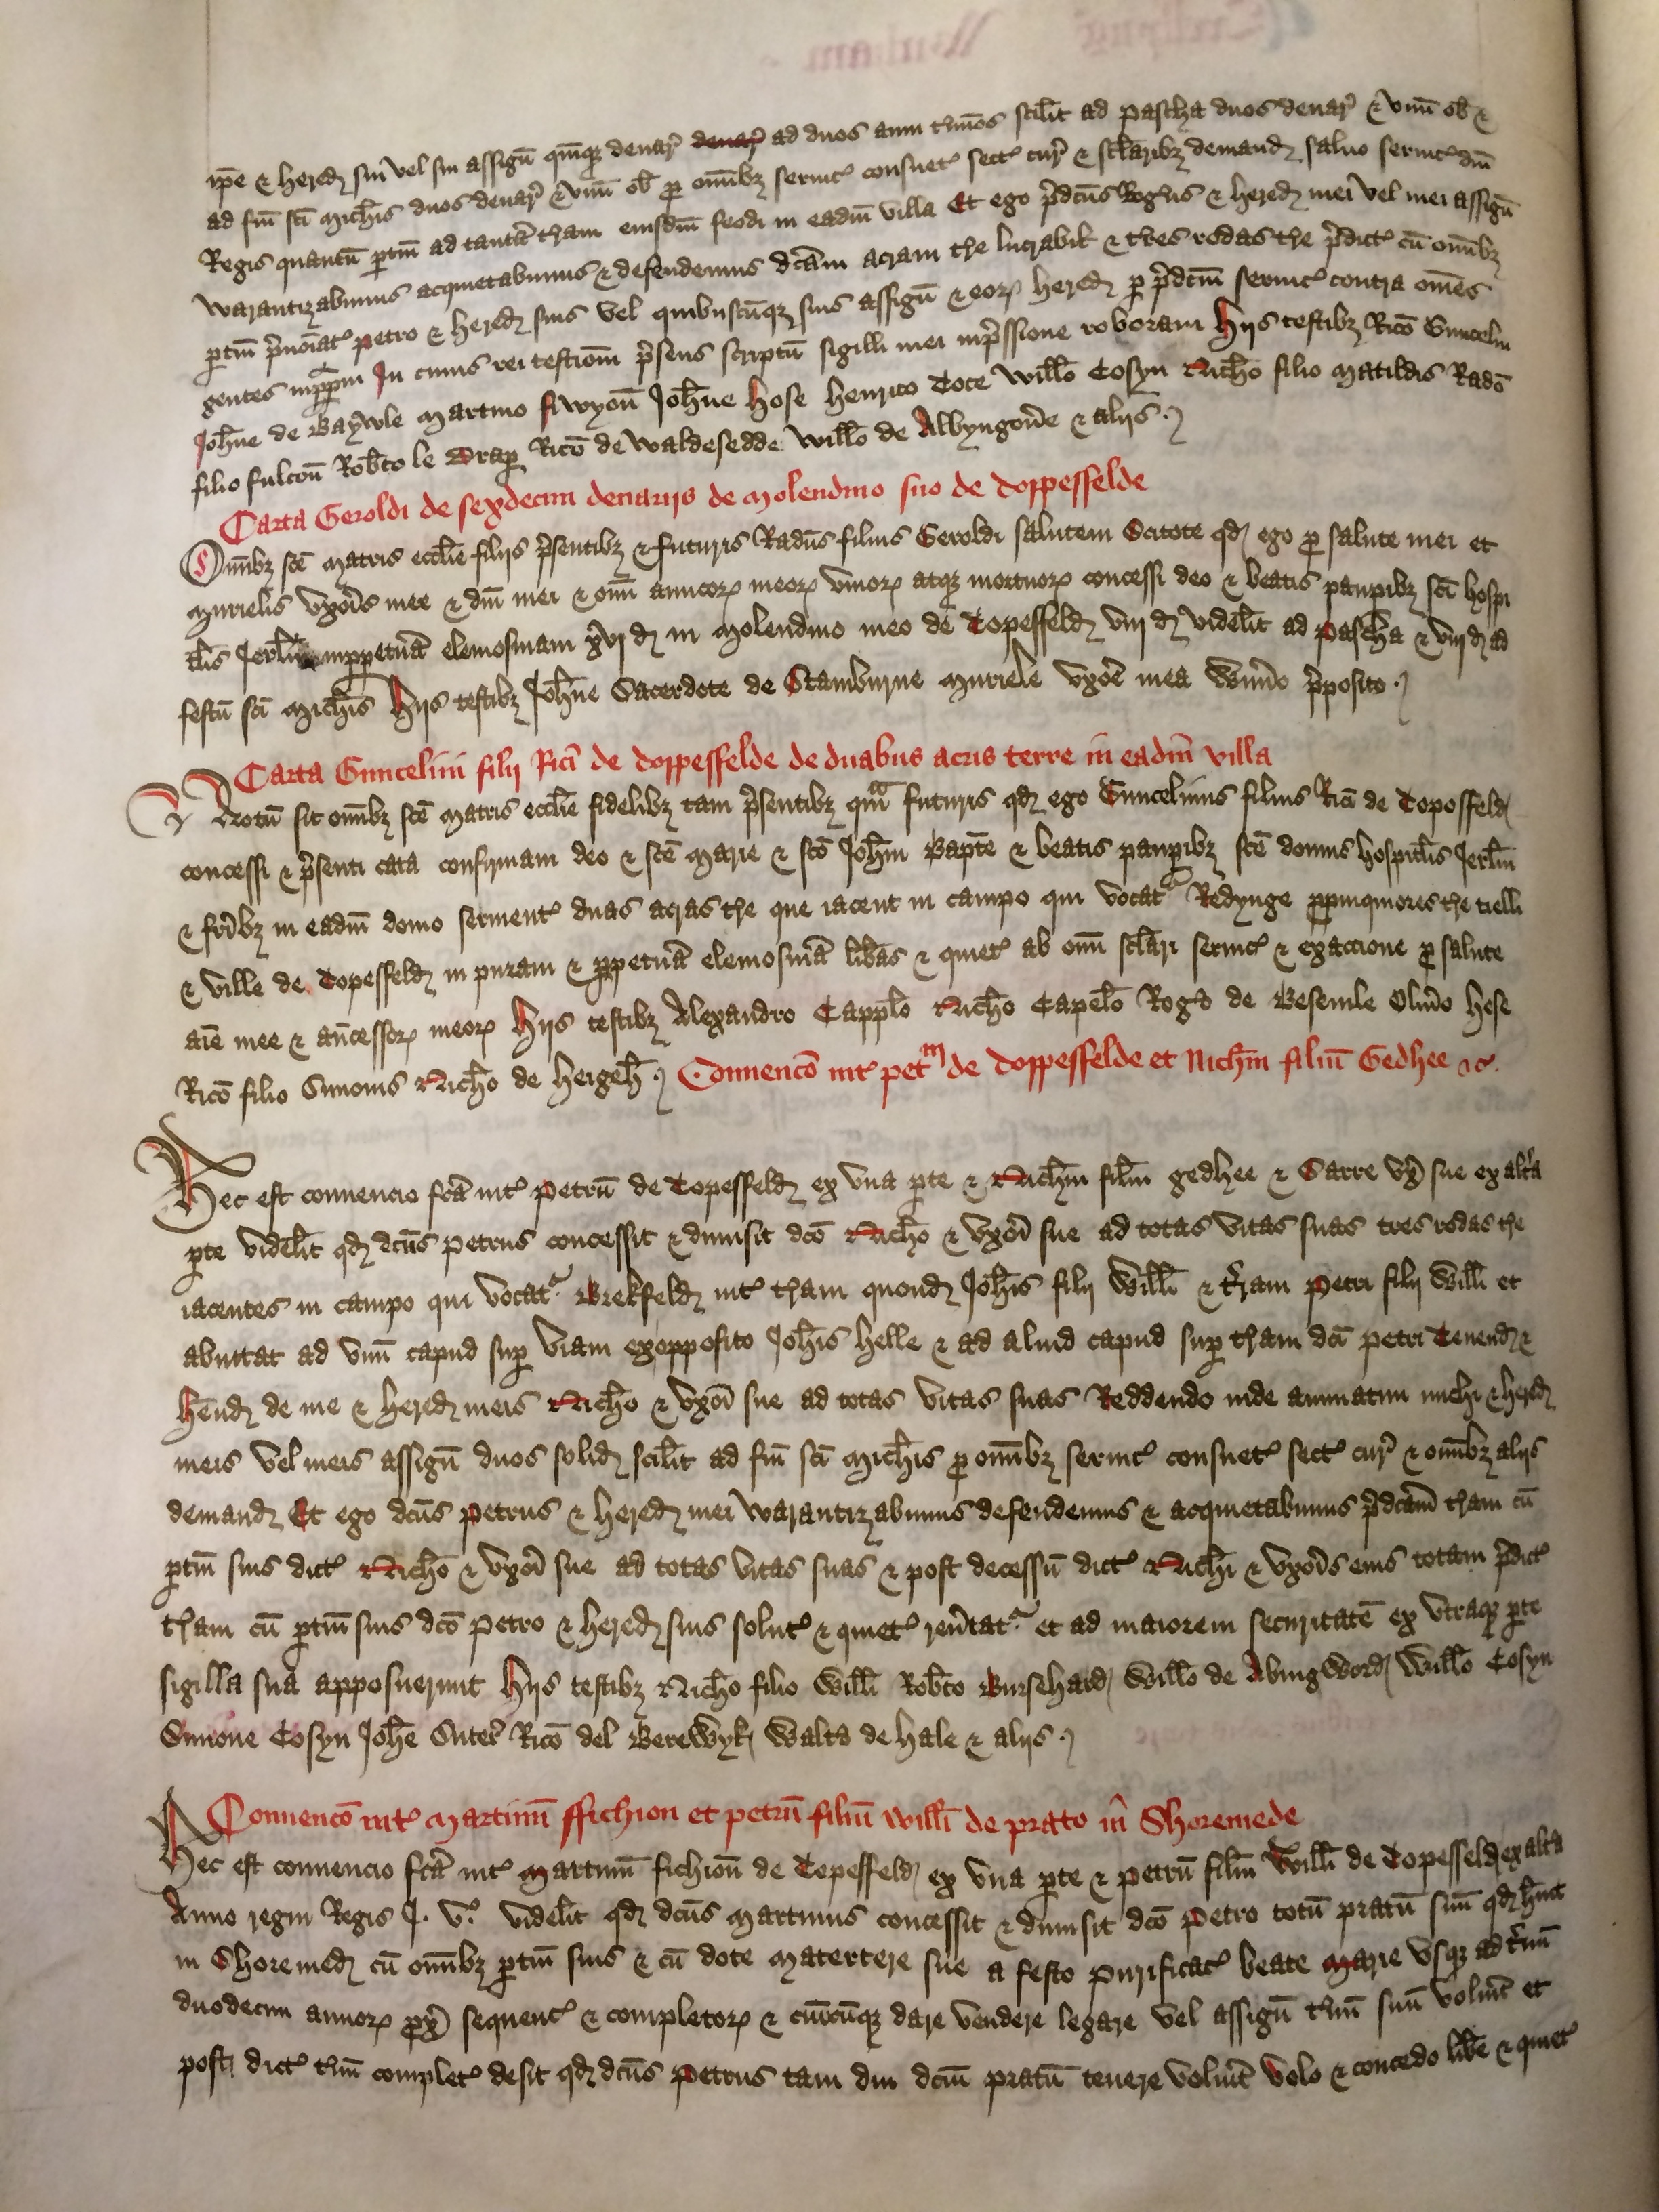 ip̄e & hered̨ sui vel sui assign̄ qm̄q; denar̄ denar̄ ad duos anni t̄mīos scil̄it ad pascha duos denar̄ & vnū ob̄ &
ad fm̄ sc̄i Mich̄is duos denar̄ & vnū ob̄ ꝑ om̄ibꝫ seruic̄ consuet̄ sect̄ cur̄ & sc̄laribꝫ demand̨ saluo seruic̄ dn̄i
Regis quantū ꝑtin̄ ad tantā t̄ram eiusdm̄ feodi in eadm̄ villa Et ego p̄dc̄us Roḡus & hered̨ mei vel mei assign̄
Warantizabimus acquietabimus & defendemus dc̄am acram t̄re lucrabil̄ & tres rodas t̄re p̄dict̄ cū om̄ibꝫ
ꝑtin̄ p̄noīat̄ Petro & hered̨ suis vel quibuscūqꝫ suis assign̄ & eorꝝ hered̨ ꝑ p̄dcm̄ seruic̄ contra om̄es
gentes inꝑpm̄ In cuius rei testiom̄ p̄sens scriptū sigilli mei inp̄ssione roboraui Hijs testibꝫ Ric̄o Guncelin
Joh̄ne de Baywle Martino fiwyon̄ Joh̄ne Hose Henrico Coce Will̄o Cosyn Nich̄o filio Matildis Rad̄o
filio fulcon̄ Rob̄to le Draꝑ Ric̄o de Waldesedde Will̄o de Albyngon̄e & alijs
Carta Geroldi de sexdecim denarijs de Molendino suo de Toppesfelde
Om̄ibꝫ sc̄e Matris eccl̄ie filijs p̄sentibꝫ & futuris Rad̄us filius Geroldi salutem Scitote qd̨ ego ꝑ salute mei et
Murielis vxor̄is mee & dn̄i mei & om̄i amicorꝝ meorꝝ viuorꝝ atqꝫ mortuorꝝ concessi deo & beatis pauꝑibꝫ sc̄i hospi
tal̄is Jerl̄m inꝑpetuā elemosinam xvi d̨ in Molendino meo de Topesfeld̨ viij d̨ videl̄it ad Pascha & viij d̨ ad
festū sc̄i Mich̄is Hijs testibꝫ Joh̄ne Sacerdote de Stamburne Muriele vxor̄e mea Wim̄o p̄posito
Carta Guncelini filij Ric̄i de Toppesfelde de duabus acris terre in eadm̄ villa
Notū sit om̄ibꝫ sc̄e Matris eccl̄ie fidelibꝫ tam p̄sentibꝫ qm̄ futuris qd̨ ego Guncelinus filius Ric̄i de Toposfeld̨
concessi & p̄senti cata confirmaui deo & sc̄e Marie & sc̄o Joh̄m Bapt̄e & beatis pauꝑibꝫ sc̄e domus hospital̄is Jerl̄m
& fr̄ibꝫ in eadm̄ domo seruient̄ duas acras t̄re que iacent in campo qui vocat̄ Redynge ꝓpinquiores t̄re tielli
& ville de Topesfeld̨ in puram & ꝑpetuā elemosinā lib̄as & quiet̄ ab om̄i sc̄lari seruic̄ & exaccione ꝑ salute
aīe mee & an̄cessorꝝ meorꝝ Hijs testibꝫ Alexandro Cappl̄o Nich̄o Capel̄o Roḡo de Beseuile Oliu̅o Hese
Ric̄o filio Simonis Nich̄o de Heigeh̄ Conuenc̄o int̄ petm̄ de Toppesfelde et Nich̄m filiū Gedhee &c.
Hec est conuencio fc̄a int̄ Petrū de Topesfeld̨ ex vna ꝑte & Nich̄m fil̄m gedhee & Sarre vx̄ sue ex alt̄a
ꝑte videl̄it qd̨ dc̄us Petrus concessit & dimisit dc̄o Nich̄o & vxōi sue ad totas vitas suas tres rodas t̄re
iacentes in campo qui vocat̄ Brekfeld̨ int̄ t̄ram quond̨ Joh̄is filij Will̄i & t̄ram Petri filij Will̄i et
abuttat ad vnū capud suꝑ viam exopposito Joh̄is Helle & ad aliud capud suꝑ t̄ram dc̄i Petri Tenend̨ &
h̄end̨ de me & hered̨ meis Nich̄o & vxōi sue ad totas vitas suas Reddendo inde annuatim michi & hered̨
meis vel meis assign̄ duos solid̨ scil̄it ad fm̄ sc̄i Mich̄is ꝑ om̄ibꝫ seruic̄ consuet̄ sect̄ cur̄ & om̄ibꝫ alijs
demand̨ Et ego dc̄us Petrus & hered̨ mei Warantizabimus defendemus & acquietabimus p̄dc̄am t̄ram cū
ꝑtin̄ suis dict̄ Nich̄o & vxōi sue ad totas vitas suas & post decessū dict̄ Nich̄i & vxōis eius totam p̄dict̄
t̄ram cū ꝑtin̄ suis dc̄o Petro & hered̨ suis solut̄ & quiet̄ reu̅tat̄ et ad maiorem securitatē ex vtraqꝫ ꝑte
sigilla sua apposuerunt Hijs testibꝫ Nich̄o filio Will̄i Rob̄to Bursehard̨ Will̄o de Abingword̨ Will̄o Cosyn
Simone Cosyn Joh̄e Suter̄ Ric̄o del Berewyk Walt̄o de Hale & alijs
Conuenc̄o int̄ Martinū ffichion et petrū filiū Will̄i de prato in Shoremede
Hec est conuencio fc̄a int̄ Martinū fichion̄ de Topesfeld̨ ex vna ꝑte & Petrū fil̄m Will̄i de Topesfeld̨ ex alt̄a
Anno regni Regis J. v̊. videl̄it qd̨ dc̄us Martinus concessit & dimisit dc̄o Petro totū pratū suū qd̨ h̄uit
in Shoremed̨ cū om̄ibꝫ ꝑtin̄ suis & cū dote Matertere sue a festo Purificat̄ beate Marie vsqꝫ ad t̄mū
duodecim annorꝝ ꝓx̄ sequent̄ & completorꝝ & cūicūqꝫ dare vendere legare vel assign̄ t̄mū suū voluit̄ et
post dict̄ t̄mū complet̄ desit qd̨ dc̄us Petrus tam diu dcm̄ pratū tenere voluit̄ volo & concedo lib̄e & quiet̄